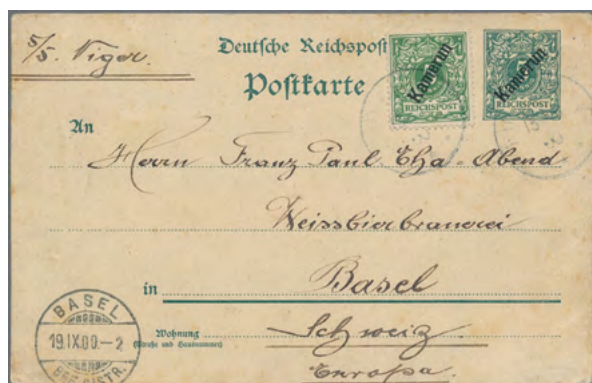 S/S. Niger.
Deutsche Reichspost
Postkarte
Kamerun
REICHSPOST
Kamerun
REICHSPOST
An
Herrn Franz Paul Abend
Weissbierbrauerei
in Basel
Wohnung
(Straße und Hausnummer)
Schweiz
Europa.
BASEL
19.IX.00.–2
BRF.DISTR.